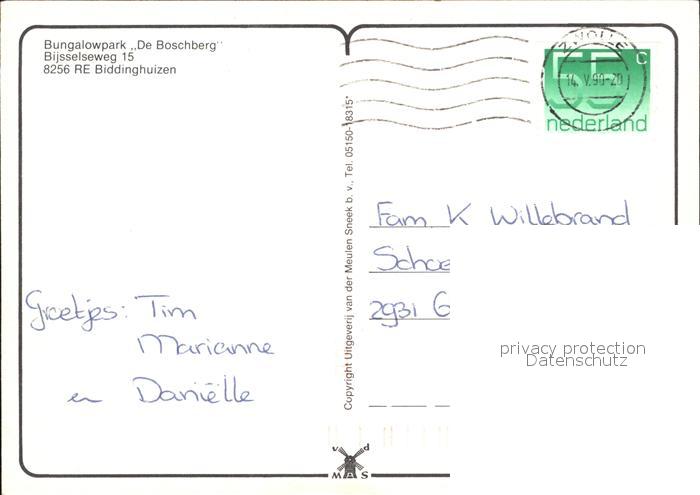 Bungalowpark „De Boschberg"
Bijsselseweg 15
8256 RE Biddinghuizen
ZWOLLE
14. V.90-20
55 c
nederland
Copyright Uitgeverij van der Meulen Sneek b.v., Tel. 05150-18315*
Fam K Willebrand
2931 G
Groetjes: Tim
Marianne
en Daniëlle
privacy protection
Datenschutz
v d
M S